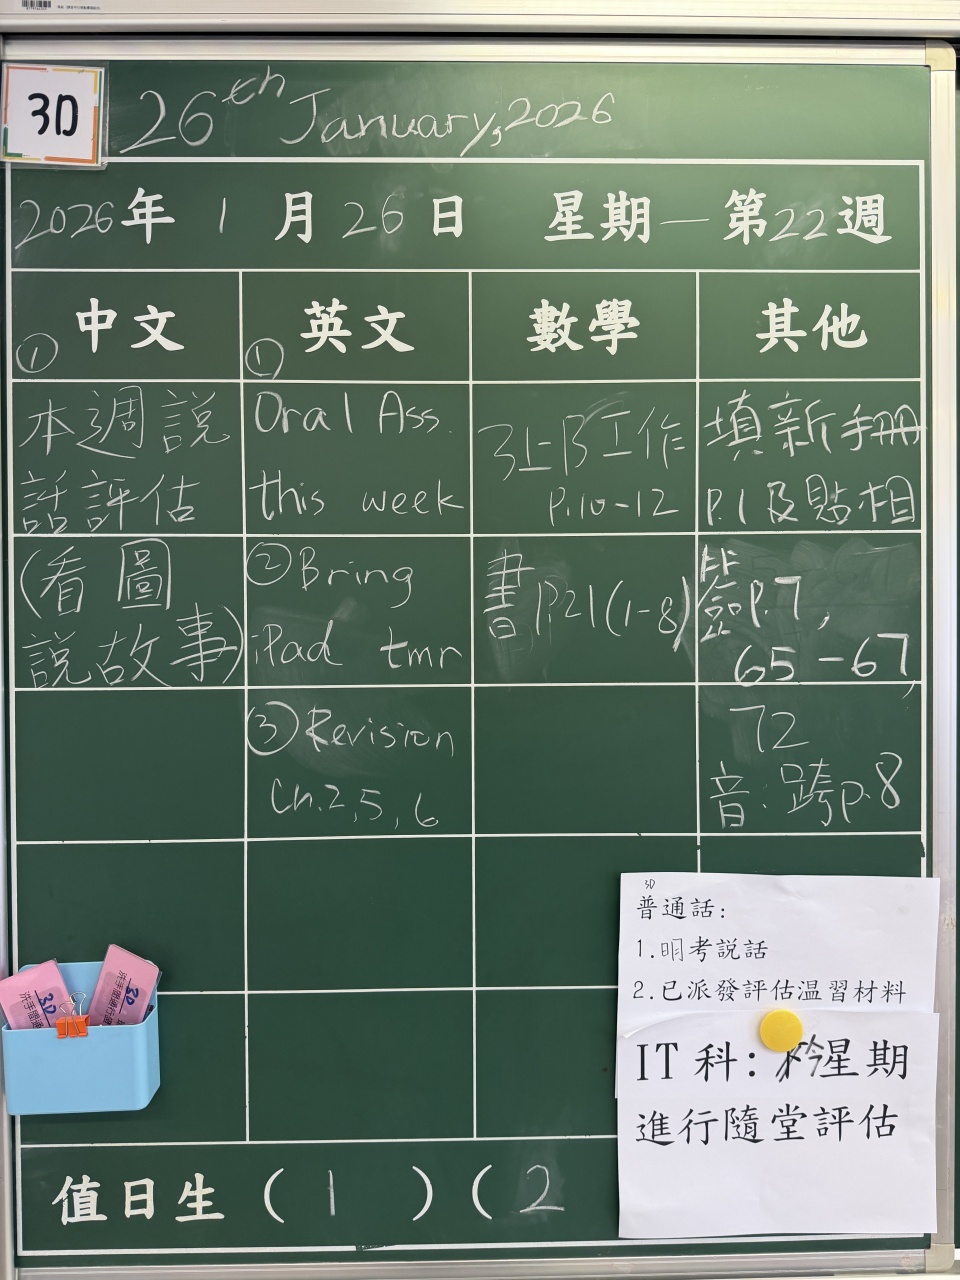 3D
26th January, 2026
2026年 1 月 26 日 星期一 第22週
① 中文
本週說
話評估
(看圖
說故事)
① 英文
Oral Ass.
this week
② Bring
iPad tmr
③ Revision
Ch.2,5,6
數學
3上B工作
P.10-12
書P.21(1-8)
其他
填新手冊
P.1及貼相
P.7,
65-67,
72
音:跨p.8
3D
普通話:
1.明考説話
2.已派發評估温習材料
IT 科: 今星期
進行隨堂評估
值日生 ( 1 ) ( 2